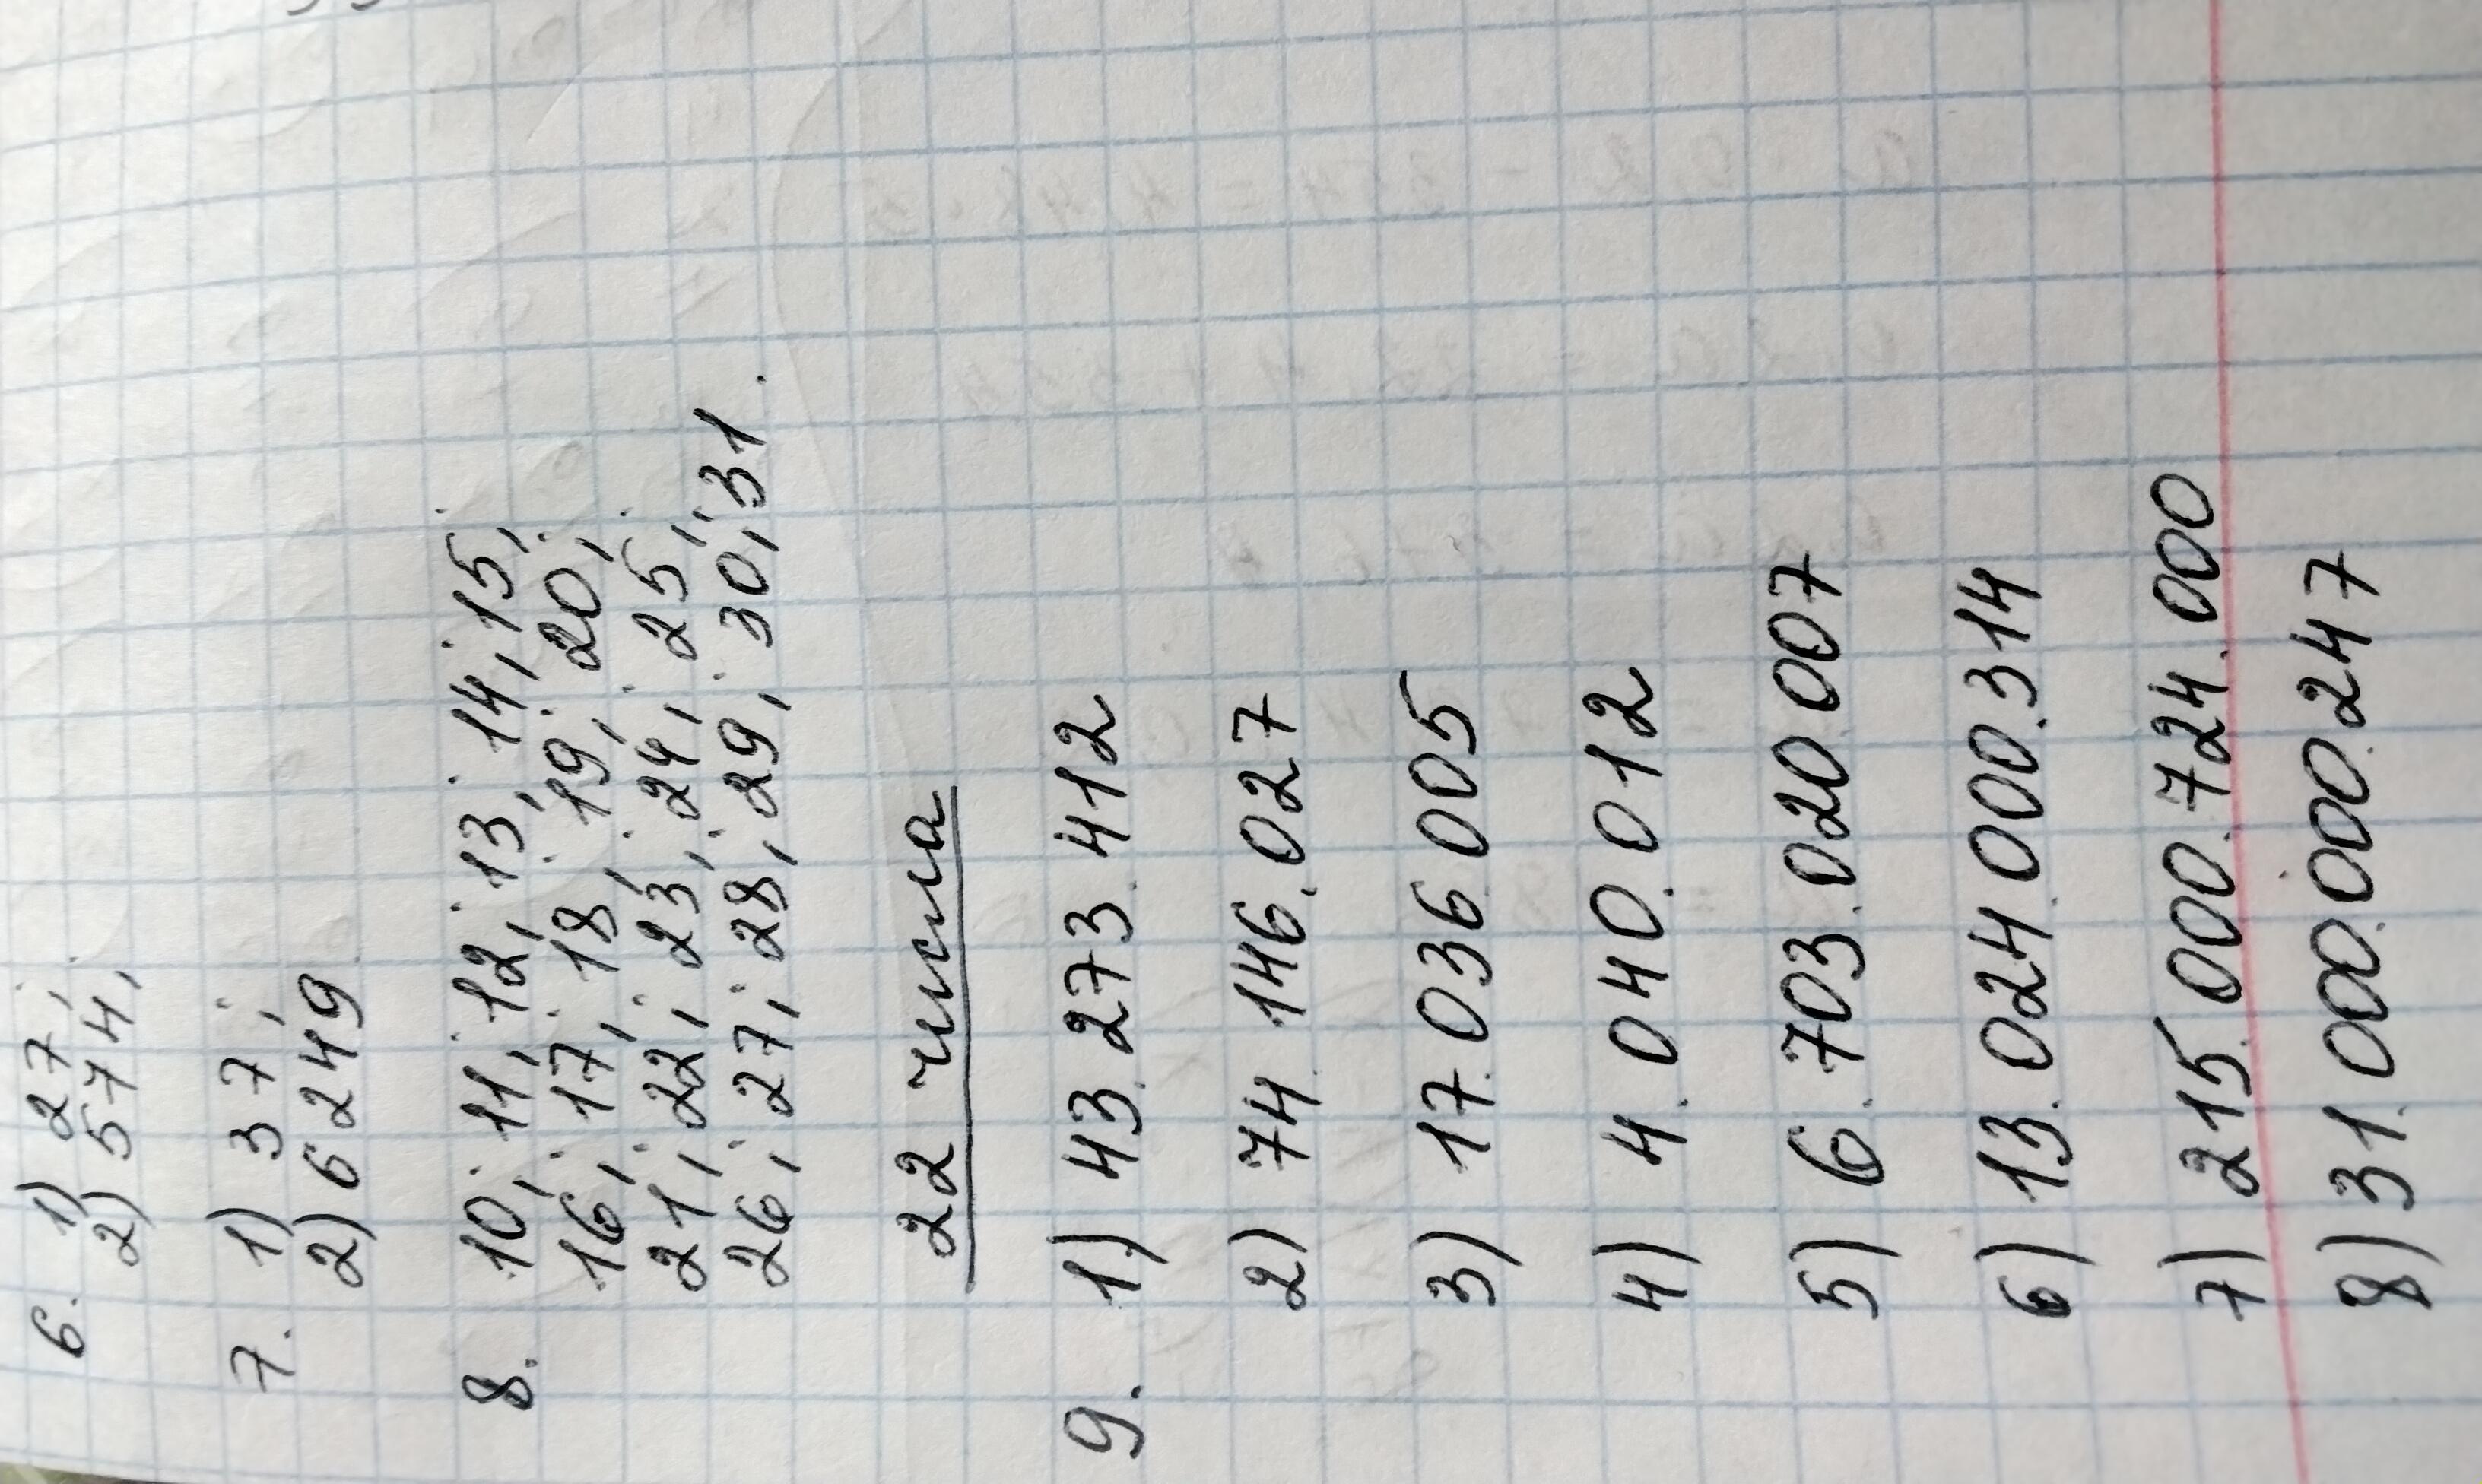 6. 1) 27;
2) 574;
7. 1) 37;
2) 6249
8. 10; 11; 12; 13; 14; 15;
16; 17; 18; 19; 20;
21; 22; 23; 24; 25;
26; 27; 28; 29; 30; 31.
22 числа
9. 1) 43.273.412
2) 74.146.027
3) 17.036.005
4) 4.040.012
5) 6.703.020.007
6) 13.024.000.314
7) 215.000.724.000
8) 31.000.000.247